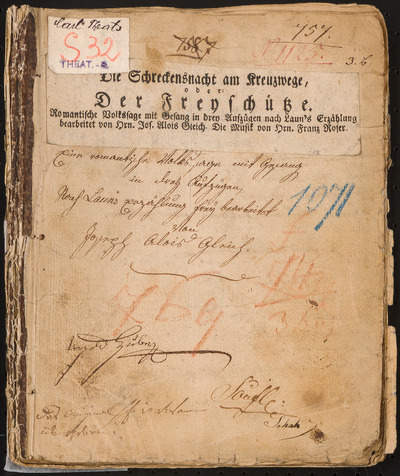 Carl Theater
S 32
THEAT.-S
7587
757.
3. b
Die Schreckensnacht am Kreuzwege,
oder:
Der Freyschütze.
Romantische Volkssage mit Gesang in drey Aufzügen nach Laun's Erzählung
bearbeitet von Hrn. Jos. Alois Gleich. Die Musik von Hrn. Franz Roser.
Eine romantische Volkssage mit Gesang
in drey Aufzügen,
Nach Launs Erzählung frey bearbeitet
von
Joseph Alois Gleich.
1071
769
Das Original